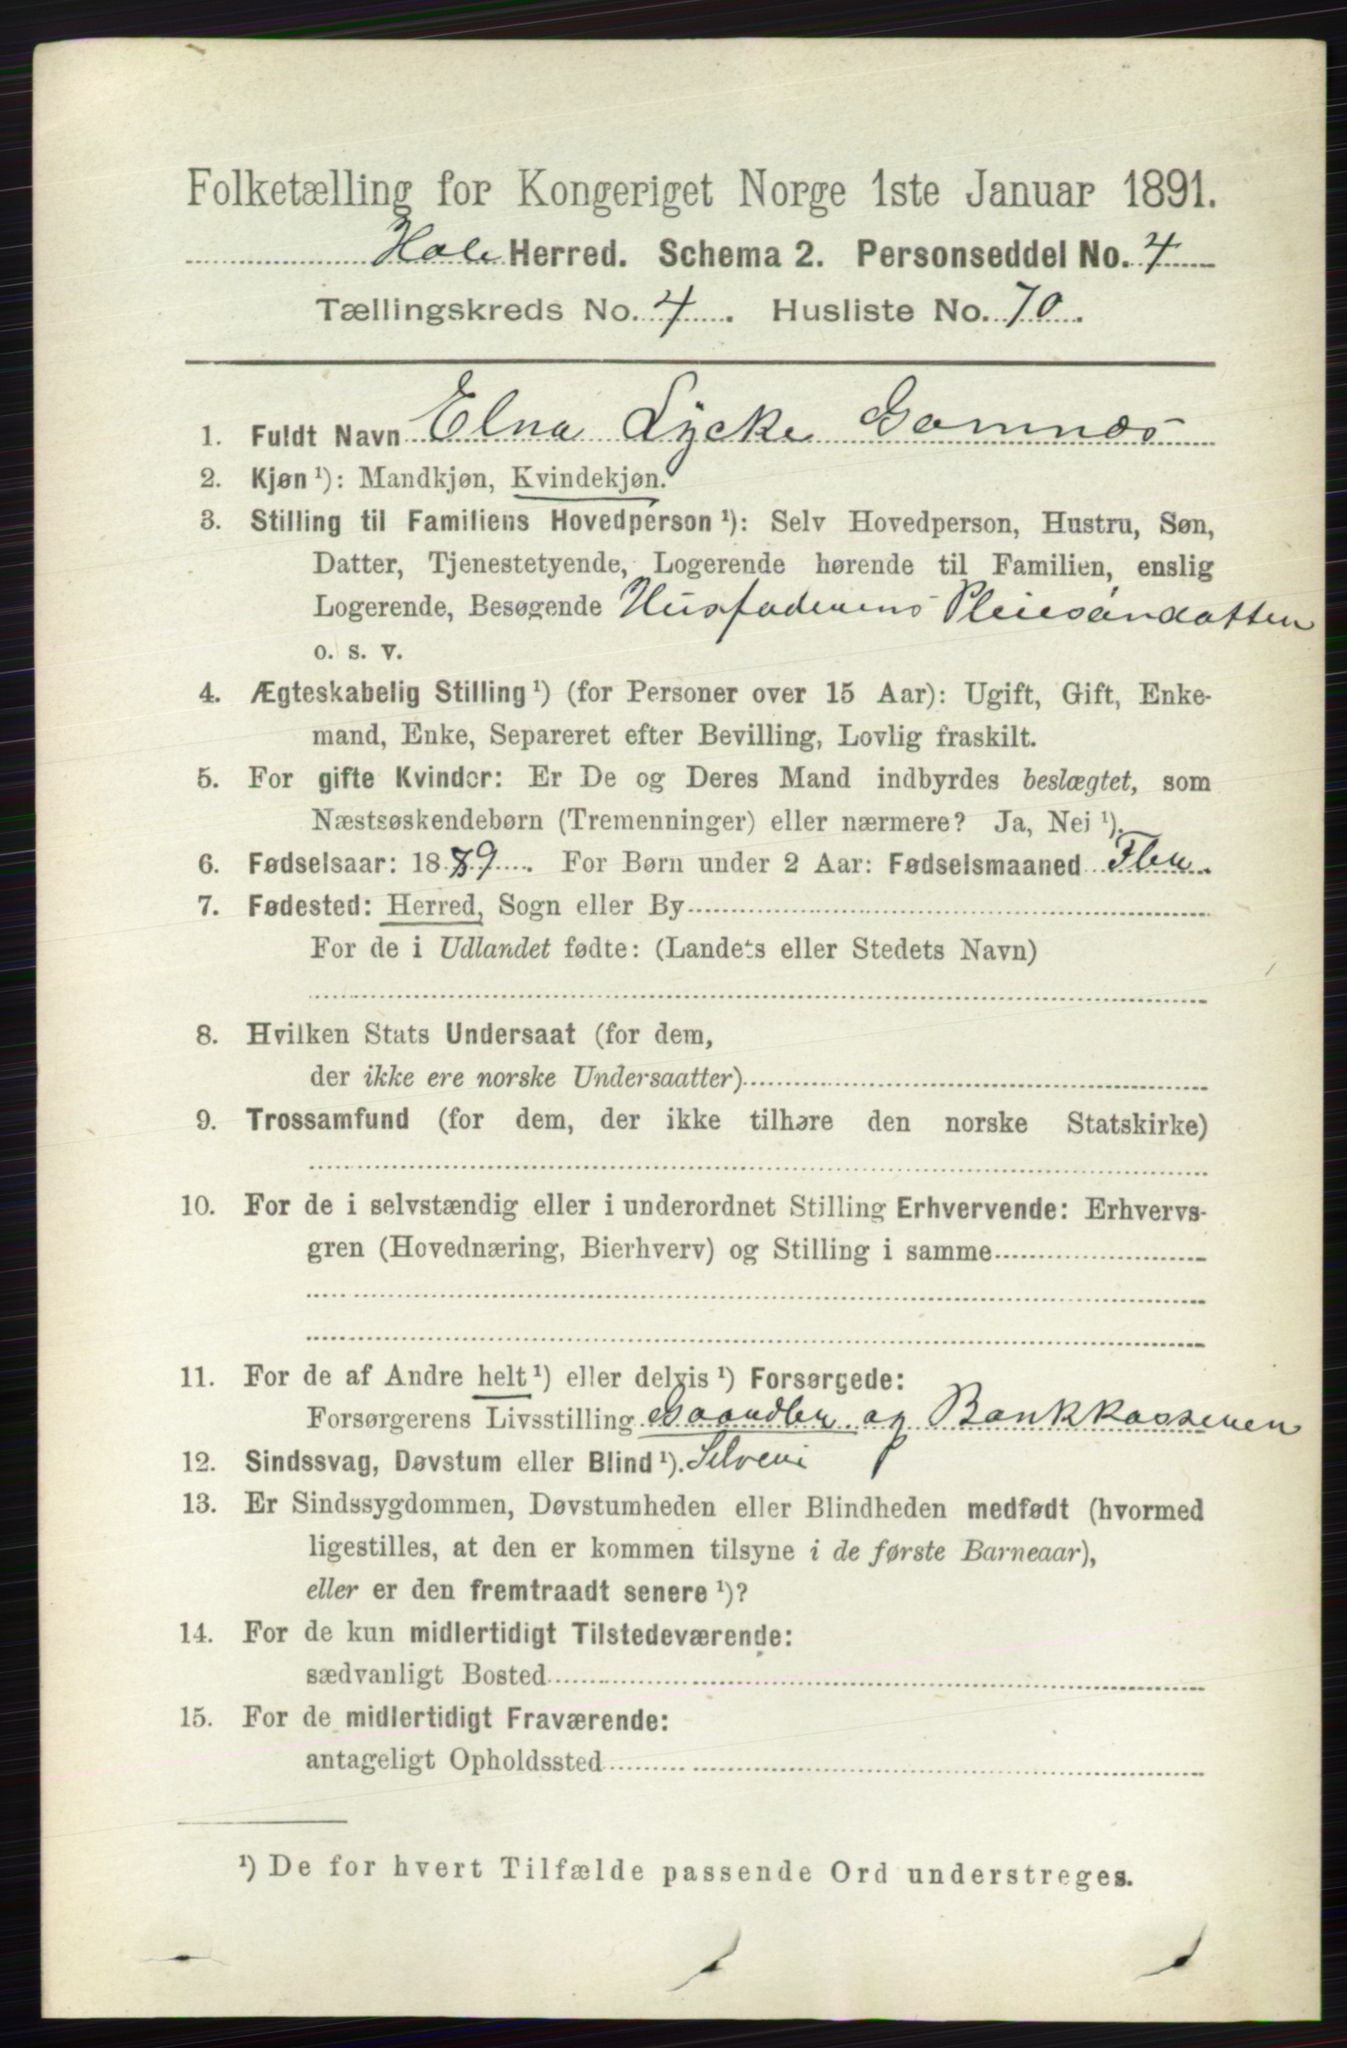 Folketælling for Kongeriget Norge 1ste Januar 1891.
Hole Herred. Schema 2. Personseddel No. 4
Tællingskreds No. 4. Husliste No. 70.
1. Fuldt Navn Elna Lycke Gomnæs
2. Kjøn ¹): Mandkjøn, Kvindekjøn.
3. Stilling til Familiens Hovedperson ¹): Selv Hovedperson, Hustru, Søn,
Datter, Tjenestetyende, Logerende hørende til Familien, enslig
Logerende, Besøgende Husfaderens Pleiesøndatter
o. s. v.
4. Ægteskabelig Stilling ¹) (for Personer over 15 Aar): Ugift, Gift, Enke-
mand, Enke, Separeret efter Bevilling, Lovlig fraskilt.
5. For gifte Kvinder: Er De og Deres Mand indbyrdes beslægtet, som
Næstsøskendebørn (Tremenninger) eller nærmere? Ja, Nei ¹).
6. Fødselsaar: 1889. For Børn under 2 Aar: Fødselsmaaned
7. Fødested: Herred, Sogn eller By
For de i Udlandet fødte: (Landets eller Stedets Navn)
8. Hvilken Stats Undersaat (for dem,
der ikke ere norske Undersaatter)
9. Trossamfund (for dem, der ikke tilhøre den norske Statskirke)
10. For de i selvstændig eller i underordnet Stilling Erhvervende: Erhvervs-
gren (Hovednæring, Bierhverv) og Stilling i samme
11. For de af Andre helt ¹) eller delvis ¹) Forsørgede:
Forsørgerens Livsstilling Gaardbr og Bankkasserer
12. Sindssvag, Døvstum eller Blind ¹).
13. Er Sindssygdommen, Døvstumheden eller Blindheden medfødt (hvormed
ligestilles, at den er kommen tilsyne i de første Barneaar),
eller er den fremtraadt senere ¹)?
14. For de kun midlertidigt Tilstedeværende:
sædvanligt Bosted
15. For de midlertidigt Fraværende:
antageligt Opholdssted
¹) De for hvert Tilfælde passende Ord understreges.